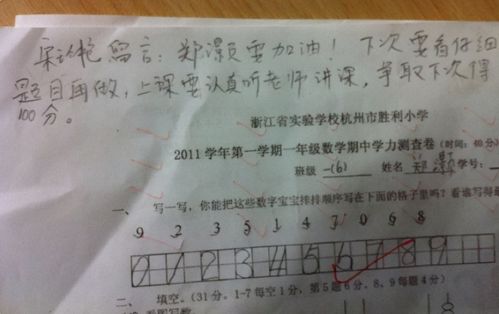 留言：郑灏要加油！下次要看仔细
题目再做，上课要认真听老师讲课，争取下次得
100分。
浙江省实验学校杭州市胜利小学
2011学年第一学期一年级数学期中学力测查卷（时间：40分
班级 一(6) 姓名 郑灏 学号：
一、 写一写，你能把这些数字宝宝排排顺序写在下面的格子里吗？看谁写得最
9 2 3 5 1 4 7 0 6 8
0 1 2 3 4 5 6 7 8 9
二、 填空。（31分。1-7每空1分，第5题6分，8、9每题4分）